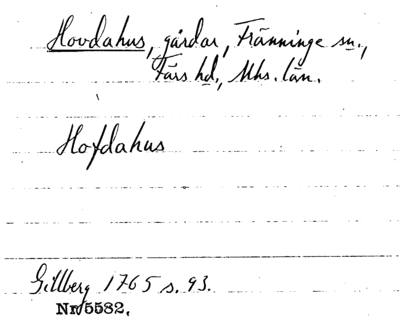 Hovdahus, gårdar, Fränninge sn.,
Färs hd., Mhs. län.
Hofdahus
Gillberg 1765 s. 93.
Nr 5582.